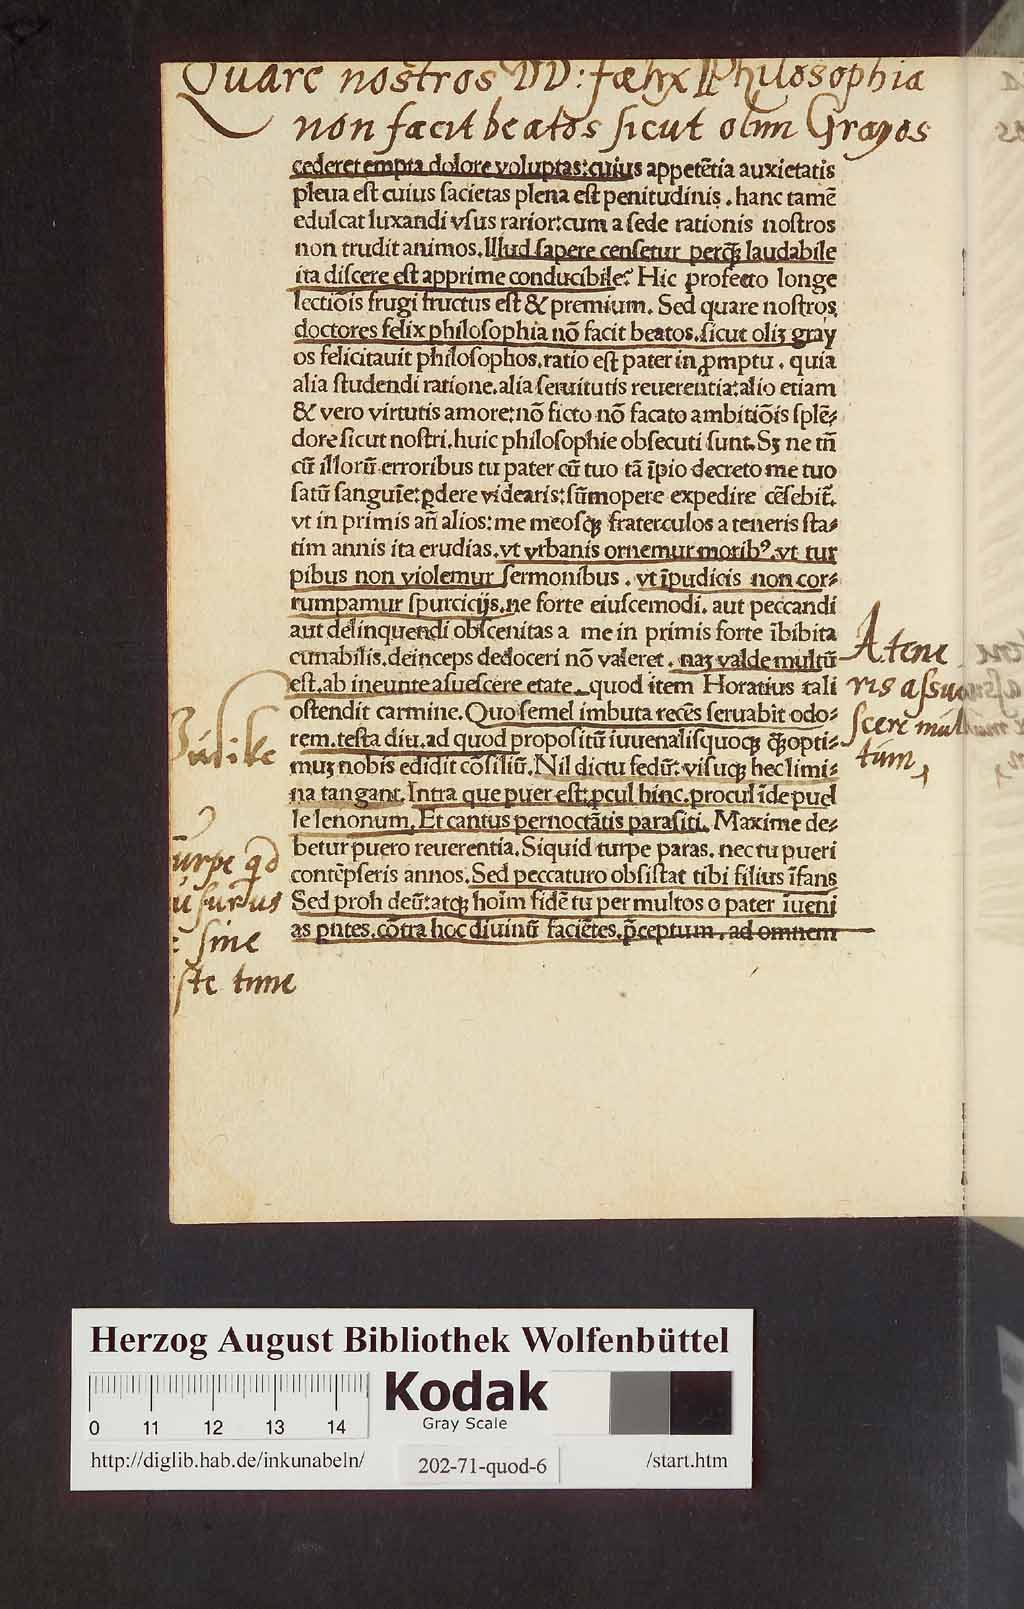 Quare nostros DD: fælix Philosophia
non facit beatos sicut olim Grayos
cederet empta dolore voluptas: cuius appetētia auxietatis
pleua eſt cuius ſacietas plena eſt penitudinis. hanc tamē
edulcat luxandi vſus rarior: cum a ſede rationis noſtros
non trudit animos. Illud ſapere cenſetur perqꝫ laudabile
ita diſcere eſt apprime conducibile? Hic profecto longe
lectiōis frugi fructus eſt & premium. Sed quare noſtros
doctores felix philoſophia nō facit beatos. ſicut oliꝫ gray
os felicitauit philoſophos. ratio eſt pater in ꝓmptu. quia
alia ſtudendi ratione. alia ſeruitutis reuerentia: alio etiam
& vero virtutis amore: nō ficto nō facato ambitiōis ſplē⸗
dore ſicut noſtri. huic philoſophie obſecuti ſunt. Sꝫ ne tñ
cū illorū erroribus tu pater cū tuo tā īpio decreto me tuo
ſatū ſanguīe: ꝑdere videaris: ſūmopere expedire cēſebit̄.
vt in primis añ alios: me meoſqꝫ fraterculos a teneris ſta⸗
tim annis ita erudias. vt vrbanis ornemur moribꝰ. vt tur
pibus non violemur ſermonibus. vt īpudicis non cor⸗
rumpamur ſpurcicijs. ne forte eiuſcemodi. aut peccandi
aut delinquendi obſcenitas a me in primis forte ībibita
cunabilis. deinceps dedoceri nō valeret. naꝫ valde multū
eſt. ab ineunte aſueſcere etate. quod item Horatius tali
oſtendit carmine. Quo ſemel imbuta recēs ſeruabit odo⸗
rem. teſta diu. ad quod propoſitū iuuenaliſquoqꝫ qꝫopti⸗
muꝫ nobis edidit cōſiliū. Nil dictu fedū: viſuqꝫ hec limi⸗
na tangant. Intra que puer eſt: ꝓcul hinc. procul īde puel
le lenonum. Et cantus pernoctātis paraſiti. Maxime de⸗
betur puero reuerentia. Siquid turpe paras. nec tu pueri
contēpſeris annos. Sed peccaturo obſiſtat tibi filius īfans
Sed proh deū: atqꝫ hoīm fidē tu per multos o pater iuueni
as pn̄tes. cōtra hoc diuinū faciētes. p̄ceptum. ad omnem
A tene
ris assue
scere mul
tum
urpe qd
sine
ste tune
Herzog August Bibliothek Wolfenbüttel
Kodak
Gray Scale
0 11 12 13 14
http://diglib.hab.de/inkunabeln/ 202-71-quod-6 /start.htm